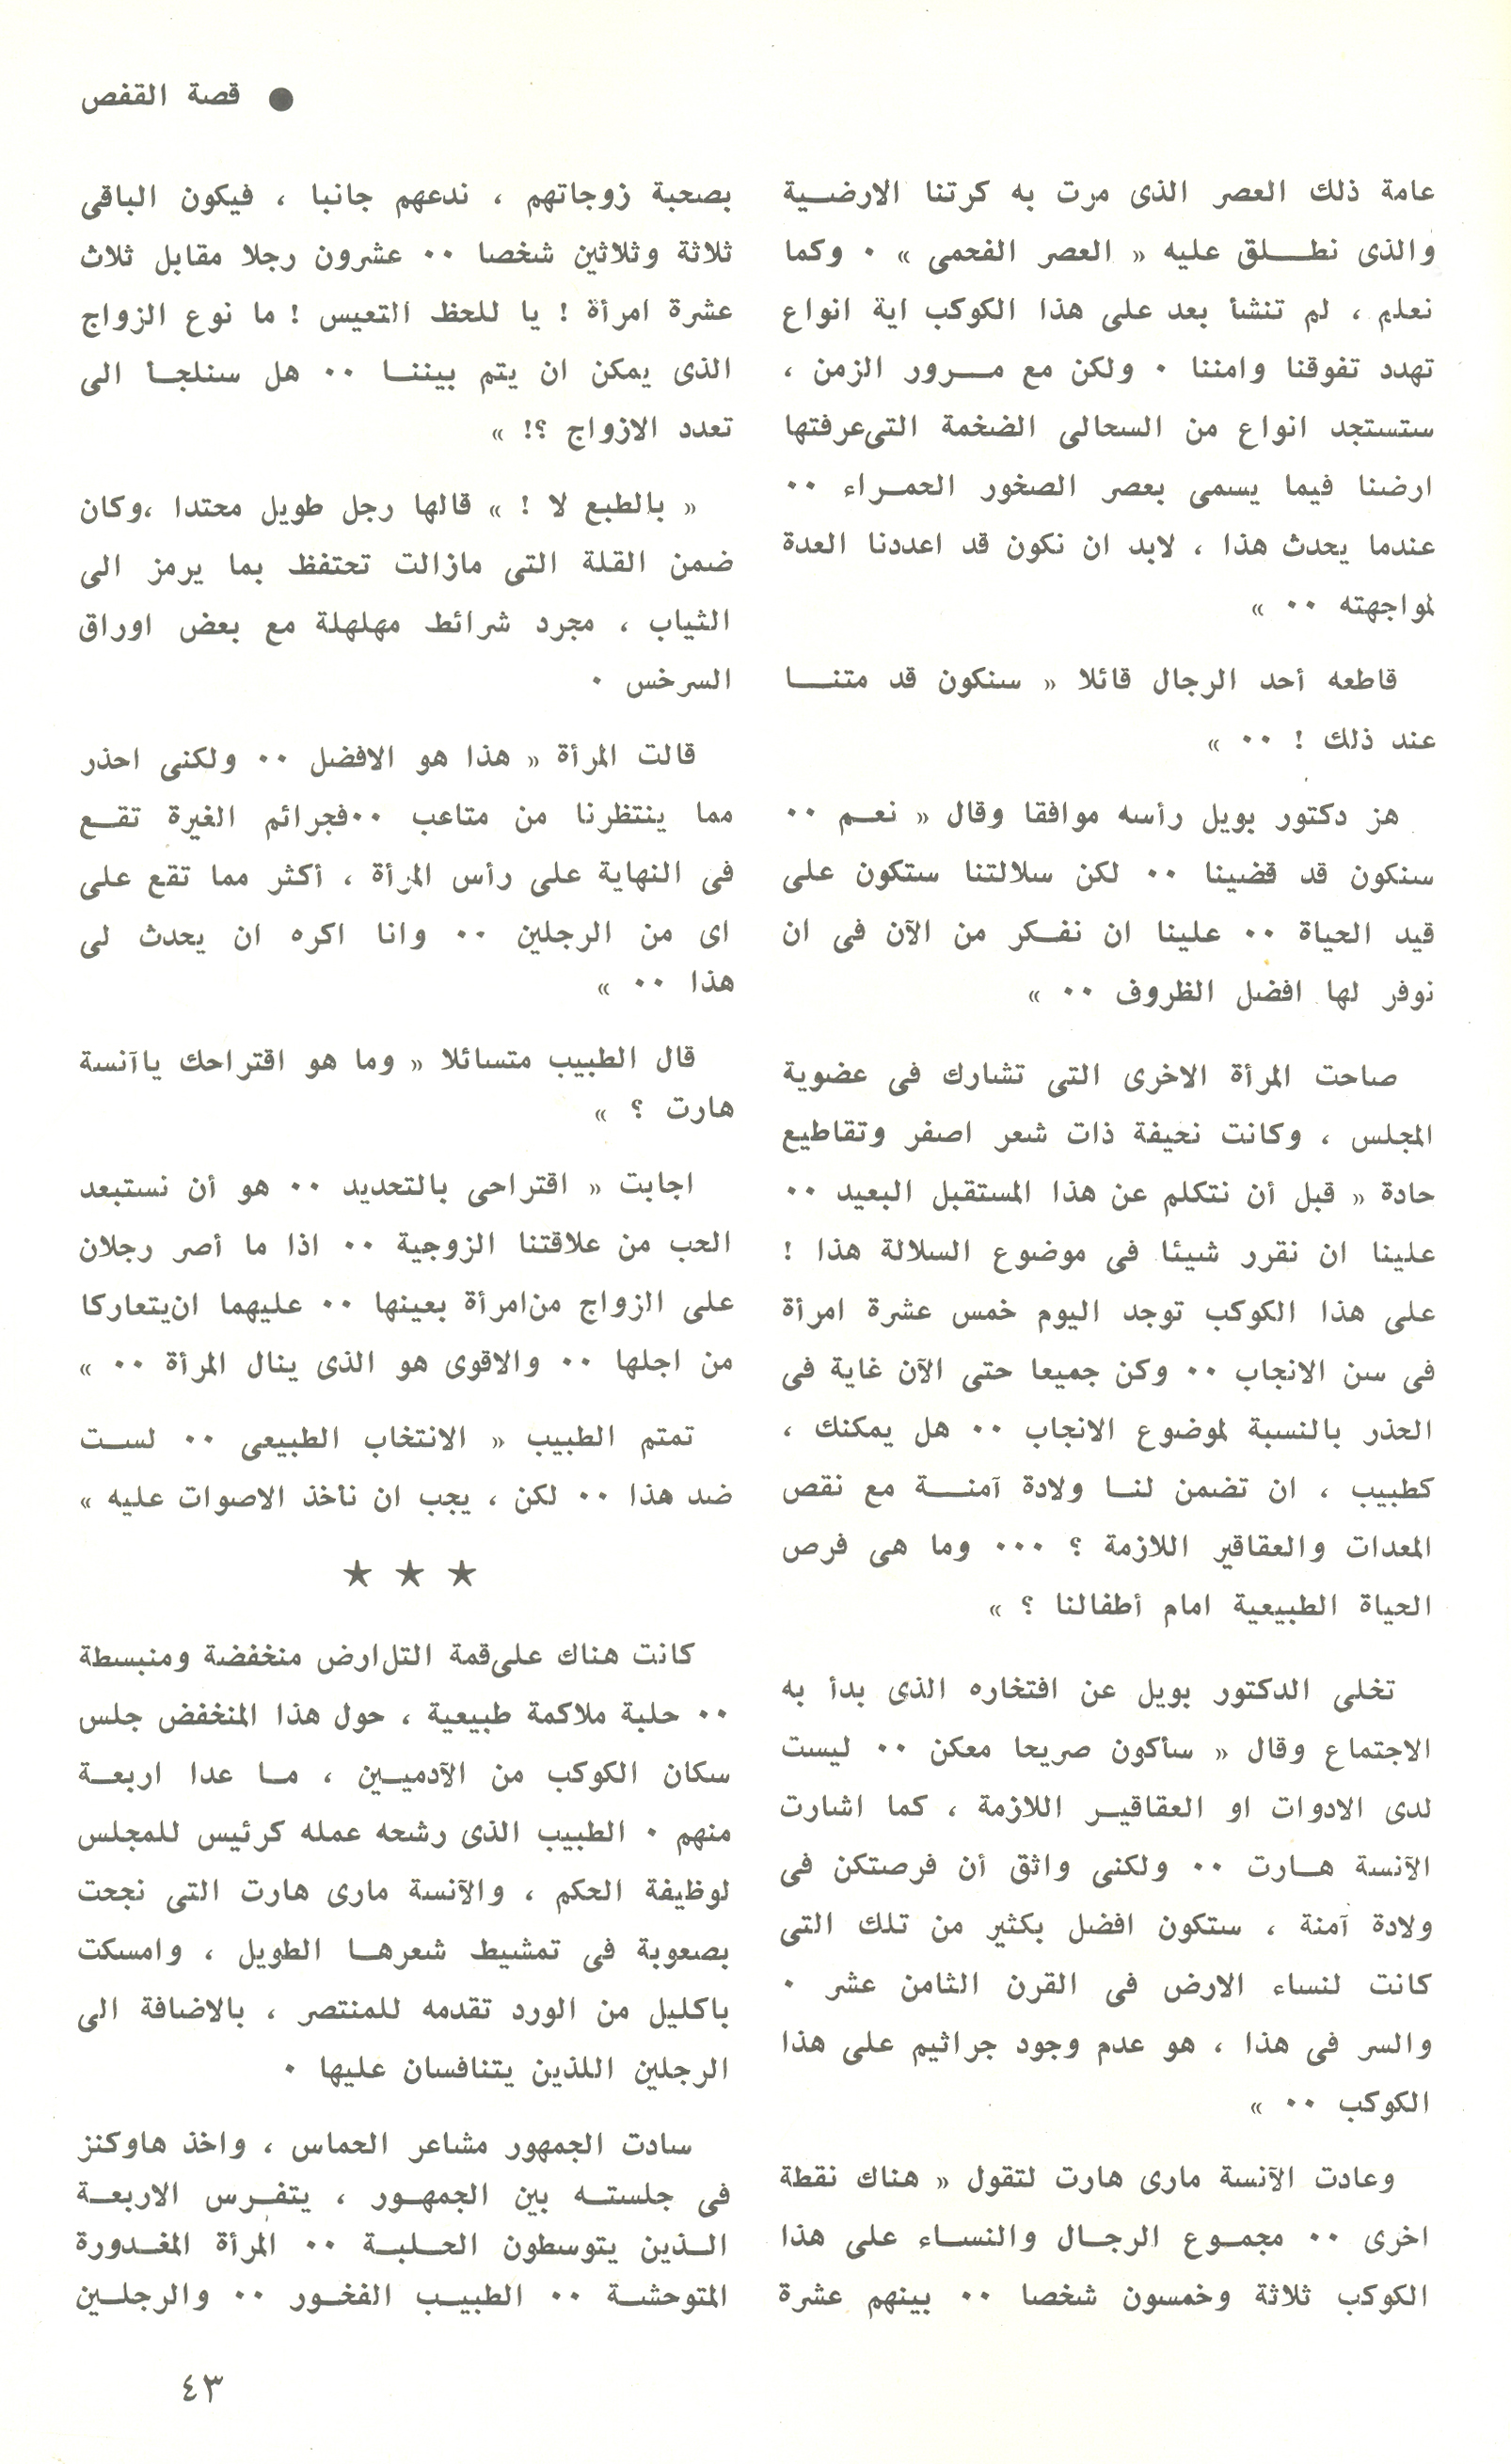 ● قصة القفص
عامة ذلك العصر الذى مرت به كرتنا الارضية
والذى نطلق عليه « العصر الفحمى » ٠ وكما
نعلم ، لم تنشأ بعد على هذا الكوكب اية انواع
تهدد تفوقنا وامننا ٠ ولكن مع مرور الزمن ،
ستستجد انواع من السحالى الضخمة التى عرفتها
ارضنا فيما يسمى بعصر الصخور الحمراء ٠٠
عندما يحدث هذا ، لابد ان نكون قد اعددنا العدة
لمواجهته ٠٠ »
قاطعه أحد الرجال قائلا « سنكون قد متنا
عند ذلك ! ٠٠ »
هز دكتور بويل رأسه موافقا وقال « نعم ٠٠
سنكون قد قضينا ٠٠ لكن سلالتنا ستكون على
قيد الحياة ٠٠ علينا ان نفكر من الآن فى ان
نوفر لها افضل الظروف ٠٠ »
صاحت المرأة الاخرى التى تشارك فى عضوية
المجلس ، وكانت نحيفة ذات شعر اصفر وتقاطيع
حادة « قبل أن نتكلم عن هذا المستقبل البعيد ٠٠
علينا ان نقرر شيئا فى موضوع السلالة هذا !
على هذا الكوكب توجد اليوم خمس عشرة امرأة
فى سن الانجاب ٠٠ وكن جميعا حتى الآن غاية فى
الحذر بالنسبة لموضوع الانجاب ٠٠ هل يمكنك ،
كطبيب ، ان تضمن لنا ولادة آمنة مع نقص
المعدات والعقاقير اللازمة ؟ ٠٠٠ وما هى فرص
الحياة الطبيعية امام أطفالنا ؟ »
تخلى الدكتور بويل عن افتخاره الذى بدأ به
الاجتماع وقال « سأكون صريحا معكن ٠٠ ليست
لدى الادوات او العقاقير اللازمة ، كما اشارت
الآنسة هارت ٠٠ ولكنى واثق أن فرصتكن فى
ولادة آمنة ، ستكون افضل بكثير من تلك التى
كانت لنساء الارض فى القرن الثامن عشر ٠
والسر فى هذا ، هو عدم وجود جراثيم على هذا
الكوكب ٠٠ »
وعادت الآنسة مارى هارت لتقول « هناك نقطة
اخرى ٠٠ مجموع الرجال والنساء على هذا
الكوكب ثلاثة وخمسون شخصا ٠٠ بينهم عشرة
بصحبة زوجاتهم ، ندعهم جانبا ، فيكون الباقى
ثلاثة وثلاثين شخصا ٠٠ عشرون رجلا مقابل ثلاث
عشرة امرأة ! يا للحظ التعيس ! ما نوع الزواج
الذى يمكن ان يتم بيننا ٠٠ هل سنلجأ الى
تعدد الازواج ؟! »
« بالطبع لا ! » قالها رجل طويل محتدا ،وكان
ضمن القلة التى مازالت تحتفظ بما يرمز الى
الثياب ، مجرد شرائط مهلهلة مع بعض اوراق
السرخس ٠
قالت المرأة « هذا هو الافضل ٠٠ ولكنى احذر
مما ينتظرنا من متاعب ٠٠فجرائم الغيرة تقع
فى النهاية على رأس المرأة ، أكثر مما تقع على
اى من الرجلين ٠٠ وانا اكره ان يحدث لى
هذا ٠٠ »
قال الطبيب متسائلا « وما هو اقتراحك ياآنسة
هارت ؟ »
اجابت « اقتراحى بالتحديد ٠٠ هو أن نستبعد
الحب من علاقتنا الزوجية ٠٠ اذا ما أصر رجلان
على الزواج من امرأة بعينها ٠٠ عليهما ان يتعاركا
من اجلها ٠٠ والاقوى هو الذى ينال المرأة ٠٠ »
تمتم الطبيب « الانتخاب الطبيعى ٠٠ لست
ضد هذا ٠٠ لكن ، يجب ان نأخذ الاصوات عليه »
★ ★ ★
كانت هناك على قمة التل ارض منخفضة ومنبسطة
٠٠ حلبة ملاكمة طبيعية ، حول هذا المنخفض جلس
سكان الكوكب من الآدميين ، ما عدا اربعة
منهم ٠ الطبيب الذى رشحه عمله كرئيس للمجلس
لوظيفة الحكم ، والآنسة مارى هارت التى نجحت
بصعوبة فى تمشيط شعرها الطويل ، وامسكت
باكليل من الورد تقدمه للمنتصر ، بالاضافة الى
الرجلين اللذين يتنافسان عليها ٠
سادت الجمهور مشاعر الحماس ، واخذ هاوكنز
فى جلسته بين الجمهور ، يتفرس الاربعة
الذين يتوسطون الحلبة ٠٠ المرأة المغدورة
المتوحشة ٠٠ الطبيب الفخور ٠٠ والرجلين
٤٣